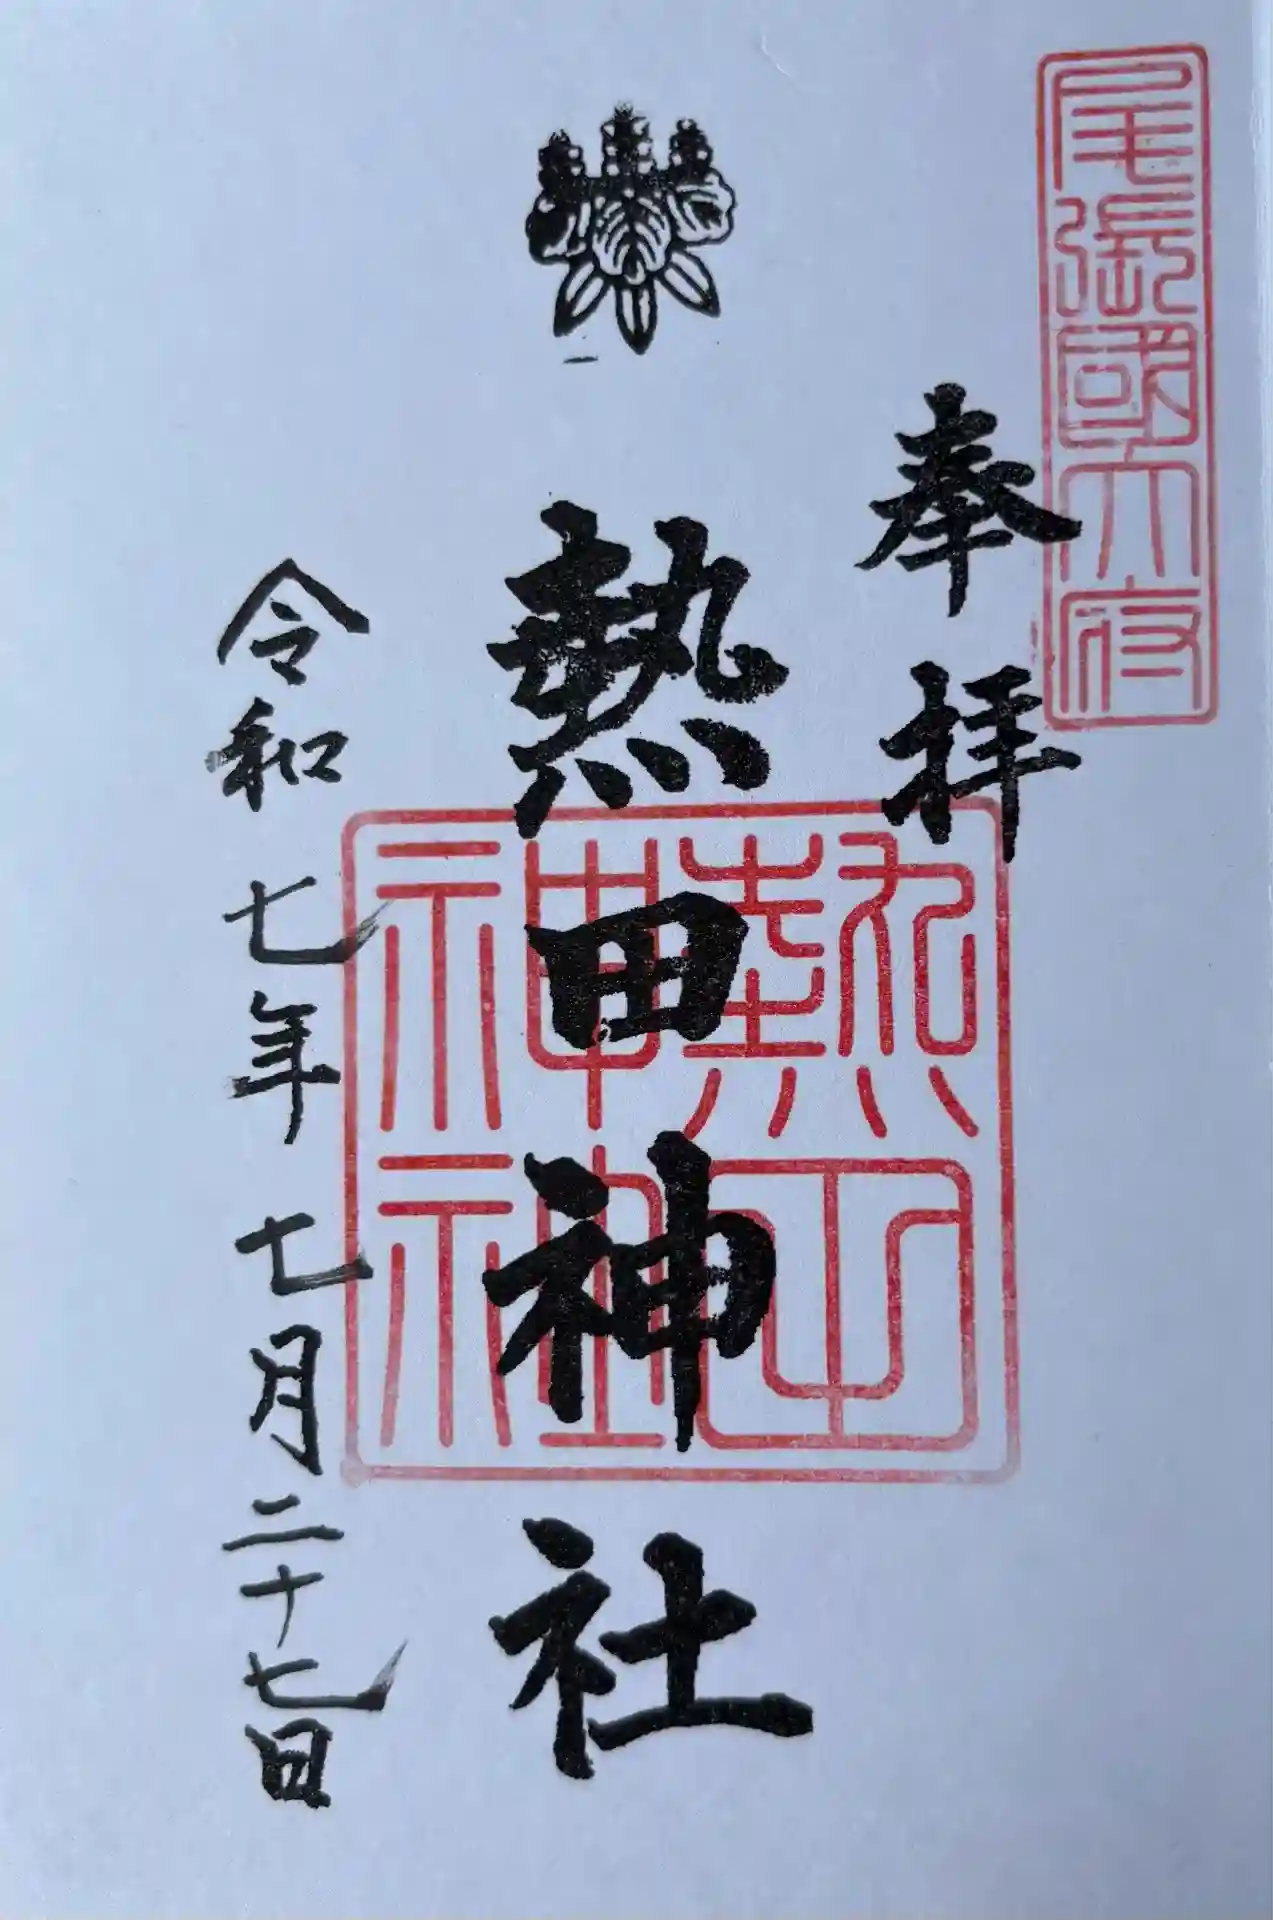 尾張國大府
奉拝
熱田神社
熱田
神社
令和七年七月二十七日